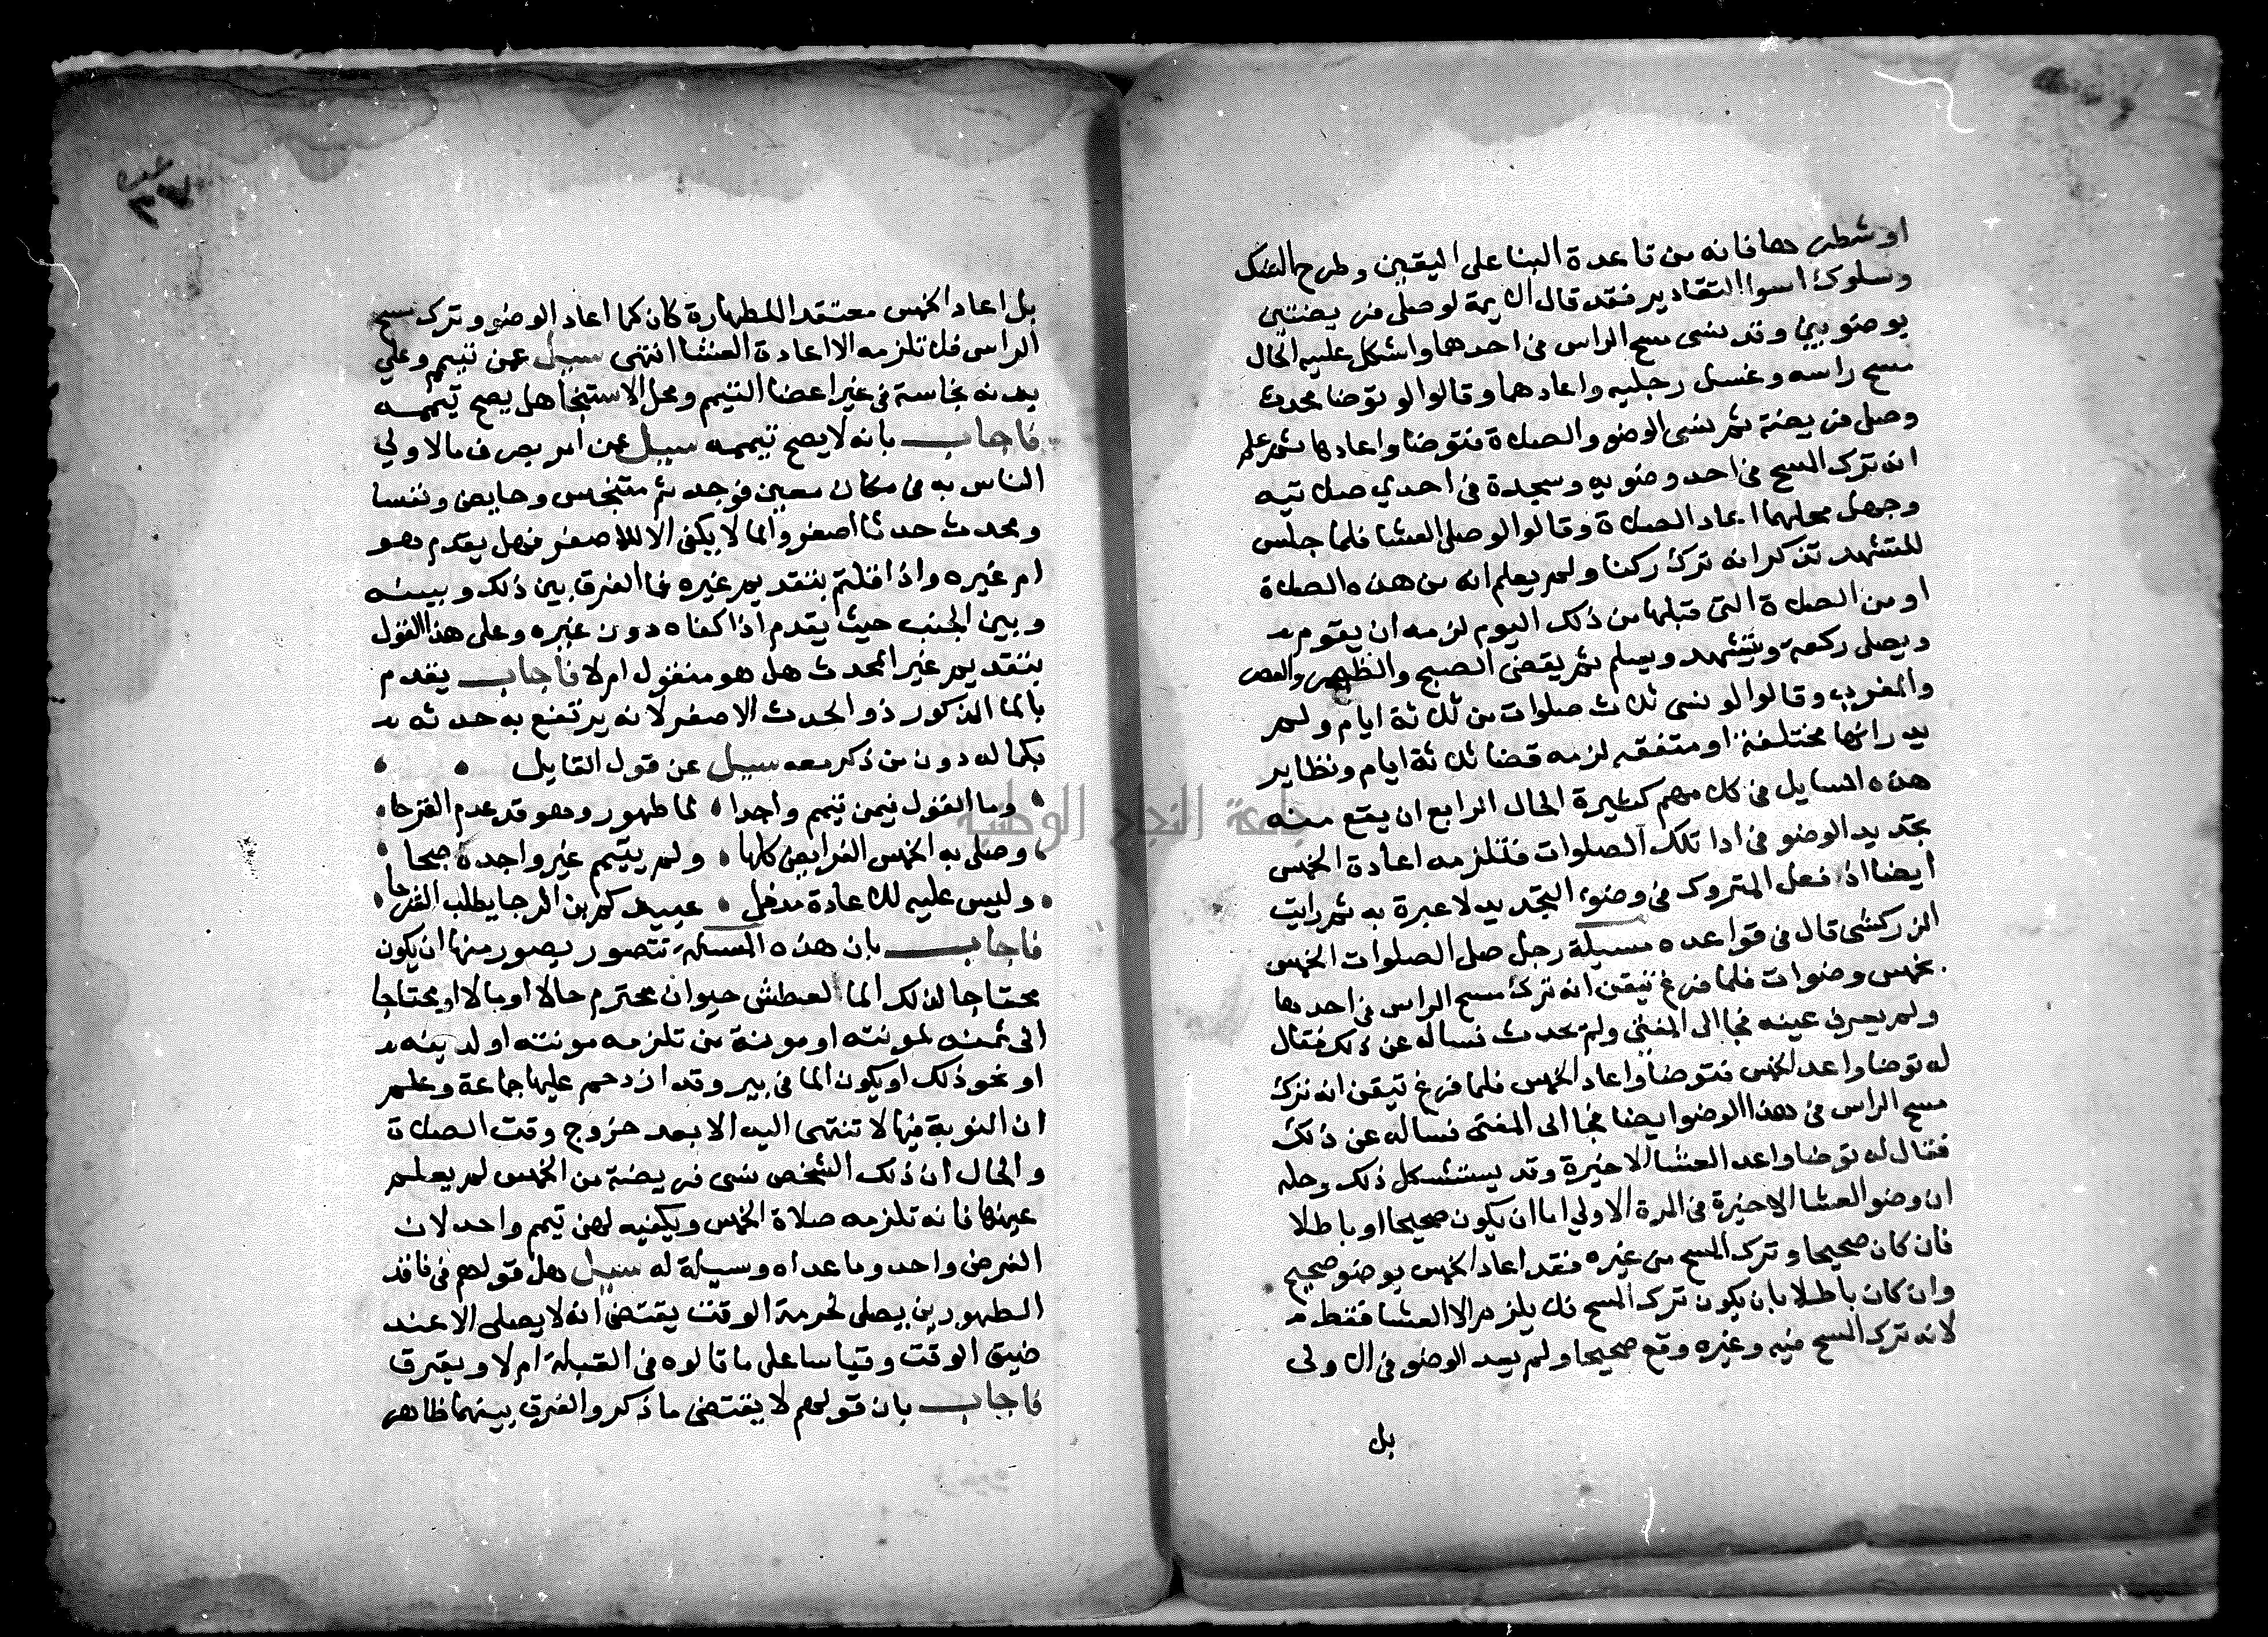 او شطرها فانه من قاعدة البنا على اليقين وطرح الشك
وسلوك اسوا التقادير فقد قال الايمة لو صلى فريضتين
بوضويين وقد نسى مسح الراس فى احدهما واشكل عليه الحال
مسح راسه وغسل رجليه واعادهما وقالوا لو توضا محدث
وصلى فريضة ثم نسى الوضو والصلاة فتوضا واعادها ثم علم
انه ترك المسح فى احد وضويه وسجدة فى احدي صلاتيه
وجهل محلهما اعاد الصلاة وقالوا لو صلى العشا فلما جلس
للتشهد تذكر انه ترك ركنا ولم يعلم انه من هذه الصلاة
او من الصلاة التى قبلها من ذلك اليوم لزمه ان يقوم
ويصلى ركعة ويتشهد ويسلم ثم يقضى الصبح والظهر والعصر
والمغرب وقالوا لو نسى ثلاث صلوات من ثلاثة ايام ولم
يدر انها مختلفة او متفقه لزمه قضا ثلاثة ايام ونظاير
هذه المسايل فى كلامهم كثيرة الحال الرابع ان يقع منه
تجديد الوضو فى ادا تلك الصلوات فتلزمه اعادة الخمس
ايضا اذ فعل المتروك فى وضوء التجديد لا عبرة به ثم رايت
الزركشى قال فى قواعده مسيلة رجل صلى الصلوات الخمس
بخمس وضوات فلما فرغ تيقن انه ترك مسح الراس فى احدها
ولم يعرف عينه فجا الى المفتى ولم يحدث فساله عن ذلك فقال
له توضا واعد الخمس فتوضا واعاد الخمس فلما فرغ تيقن انه ترك
مسح الراس فى هذا الوضو ايضا فجا الى المفتى فساله عن ذلك
فقال له توضا واعد العشا الاخيرة وقد يستشكل ذلك وحله
ان وضو العشا الاخيرة فى المرة الاولي اما ان يكون صحيحا او باطلا
فان كان صحيحا وترك المسح من غيره فقد اعاد الخمس بوضو صحيح
وان كان باطلا بان يكون ترك المسح فلا يلزم الا العشا فقط
لانه ترك المسح فيه وغيره وقع صحيحا ولم يعد الوضو فى الاولى
بل
بل اعاد الخمس معتقدا للطهارة كان كما اعاد الوضو وترك مسح
الراس فلا تلزمه الا اعادة العشا انتهى سيل عمن تيمم وعلي
بدنه نجاسة فى غير اعضا التيمم ومحل الاستنجا هل يصح تيممه
فاجاب بانه لا يصح تيممه سيل عمن امر بصرف ما لاولي
الناس به فى مكان معين فوجد ثم متنجس وحايض ونفسا
ومحدث حدثا اصغر والما لا يكفى الا للاصغر فهل يقدم هو
ام غيره واذا قلتم بتقديم غيره فما الفرق بين ذلك وبينه
وبين الجنب حيث يقدم اذا كفاه دون غيره وعلى هذا القول
بتقديم غير المحدث هل هو منقول ام لا فاجاب يقدم
بالما المذكور ذو الحدث الاصغر لانه يرتفع به حدثه
بكماله دون من ذكر معه سيل عن قول القايل
وما القول فيمن تيمم واجدا لما طهور وهو قد عدم القرحا
وصلى به الخمس الفرايض كلها ولم يتيمم غير واحدة صبحا
وليس عليه للاعادة مدخل عبيدكم بن الرجا يطلب الفرحا
فاجاب بان هذه المسلة تتصور بصور منها ان يكون
محتاجا لذلك الما لعطش حيوان محترم حالا او مالا او محتاجا
الى ثمنه لمونته او مونة من تلزمه مونته او لدينه
او نحو ذلك او يكون الما فى بير وقد ازدحم عليها جماعة وعلم
ان النوبة فيها لا تنتهى اليه الا بعد خروج وقت الصلاة
والحال ان ذلك الشخص نسى فريضة من الخمس لم يعلم
عينها فانه تلزمه صلاة الخمس ويكفيه لهن تيمم واحد لان
الفرض واحد وما عداه وسيلة له سيل هل قولهم فى فاقد
الطهورين يصلى لحرمة الوقت يقتضى انه لا يصلى الا عند
ضيق الوقت وقياسا على ما قالوه فى القبلة ام لا ويفرق
فاجاب بان قولهم لا يقتضى ما ذكر والفرق بينهما ظاهر
جامعة النجاح الوطنية